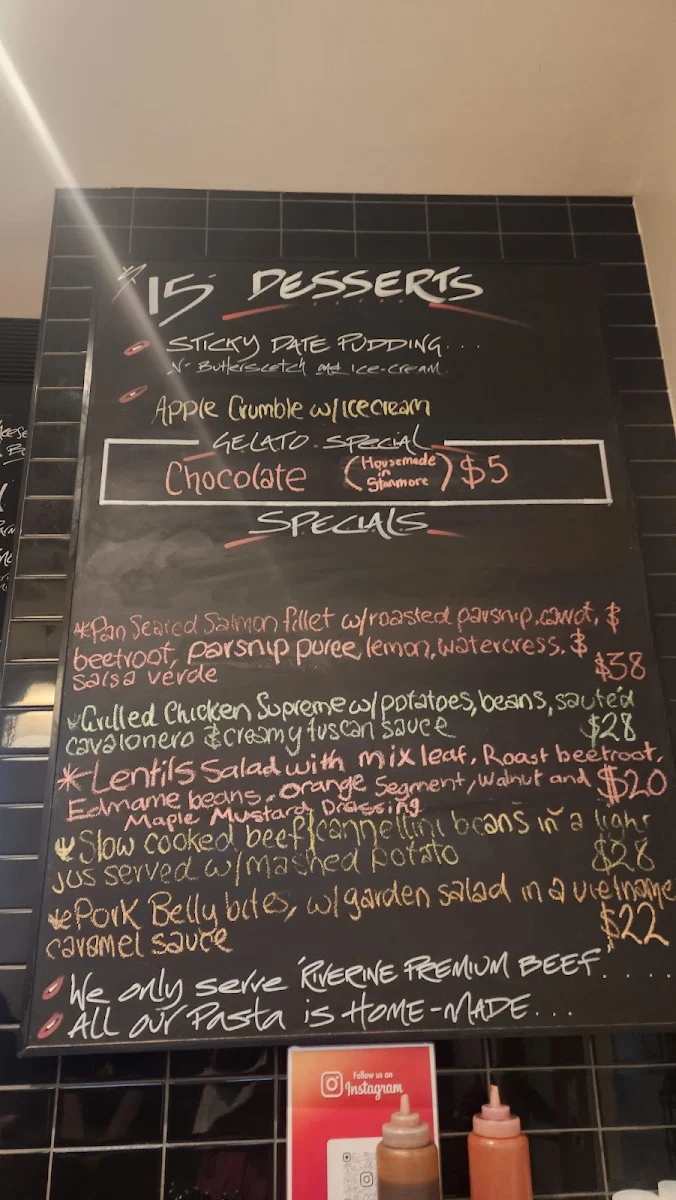 $15 DESSERTS
STICKY DATE PUDDING...
W- Butterscotch and ice-cream.
Apple Crumble w/icecream
GELATO SPECIAL
Chocolate (Housemade in Stanmore) $5
SPECIALS
*Pan Seared Salmon fillet w/roasted parsnip, carrot, $
beetroot, parsnip puree lemon, watercress, $
salsa verde $38
Grilled Chicken Supreme w/potatoes, beans, sauted
cavalonero & creamy tuscan sauce $28
*Lentils Salad with mix leaf, Roast beetroot,
Edmame beans, orange Segment, Walnut and $20
Maple Mustard Dressing
Slow cooked beef/cannellini beans in a light
jus served w/mashed potato $28
Pork Belly bites, w/garden salad in a vietname
caramel sauce $22
We only serve 'RIVERINE PREMIUM BEEF'....
All our Pasta is HOME-MADE...
Follow us on
Instagram